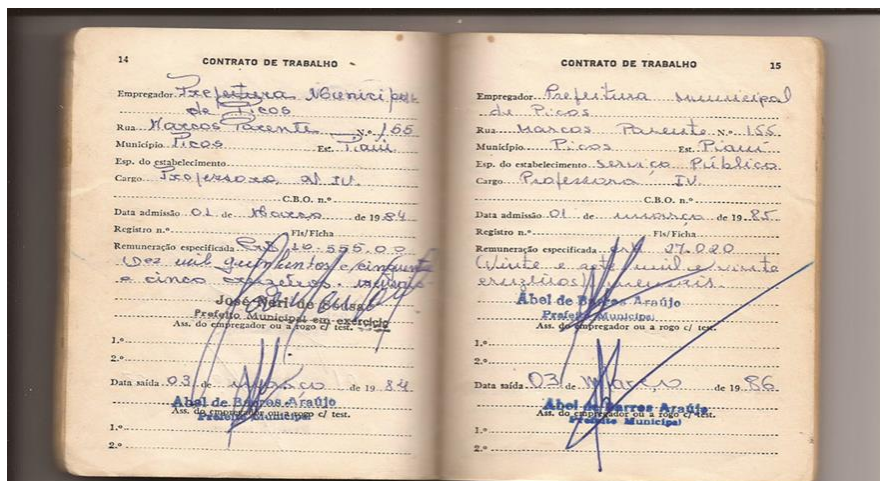 14
CONTRATO DE TRABALHO
Empregador Prefeitura Municipal
de Picos
Rua Marcos Parente N.º 155
Município Picos Est. Piauí
Esp. do estabelecimento
Cargo Professora N IV.
C.B.O. n.º
Data admissão 01 de Março de 1984
Registro n.º Fls/Ficha
Remuneração especificada 10.555,00
(Dez mil quinhentos e cinquenta
e cinco cruzeiros
José Neri de Sousa
Prefeito Municipal em exercício
Ass. do empregador ou a rogo c/ test.
1.º
2.º
Data saída 03 de março de 1984
Abel de Barros Araújo
Ass. do empregador ou a rogo c/ test.
Prefeito Municipal
1.º
2.º
CONTRATO DE TRABALHO
15
Empregador Prefeitura municipal
de Picos
Rua Marcos Parente N.º 155
Município Picos Est. Piauí
Esp. do estabelecimento serviço Público
Cargo Professora IV.
C.B.O. n.º
Data admissão 01 de março de 1985
Registro n.º Fls/Ficha
Remuneração especificada 27.020
(Vinte e sete mil e vinte
cruzeiros) mensais.
Abel de Barros Araújo
Prefeito Municipal
Ass. do empregador ou a rogo c/ test.
1.º
2.º
Data saída 03 de Março de 1986
Abel de Barros Araújo
Ass. do empregador ou a rogo c/ test.
Prefeito Municipal
1.º
2.º